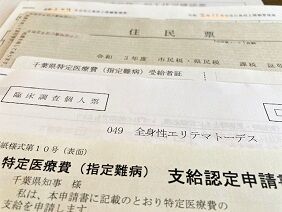 住民票
令和3年度 市民税・県民税
千葉県特定医療費(指定難病)受給者証
臨床調査個人票
049 全身性エリテマトーデス
紙様式第10号(表面)
特定医療費(指定難病) 支給認定申請書
千葉県知事 様
私は、本申請書に記載のとおり特定医療費の
支給を申請します